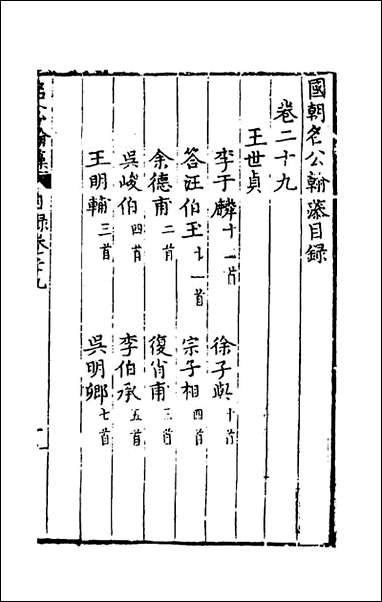 國朝名公翰藻目録
卷二十九
王世貞
李于麟十一首 徐子與十首
答汪伯玉七一首 宗子相四首
余德甫二首 復肖甫三首
吳峻伯四首 李伯承五首
王明輔三首 吳明卿七首
公翰藻 目録卷二十九